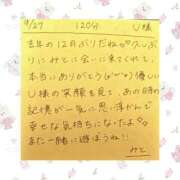 9/27 120分 U様
去年の12月ぶりだね♡久しぶ
りにみとに会いに来てくれて、
本当にありがとう(*´▽`*)♡優しい
U様の笑顔を見て、あの時の
記憶が一気に思い浮かんで
幸せな気持ちになったよ♡。
また一緒に遊ぼうね!!
みと